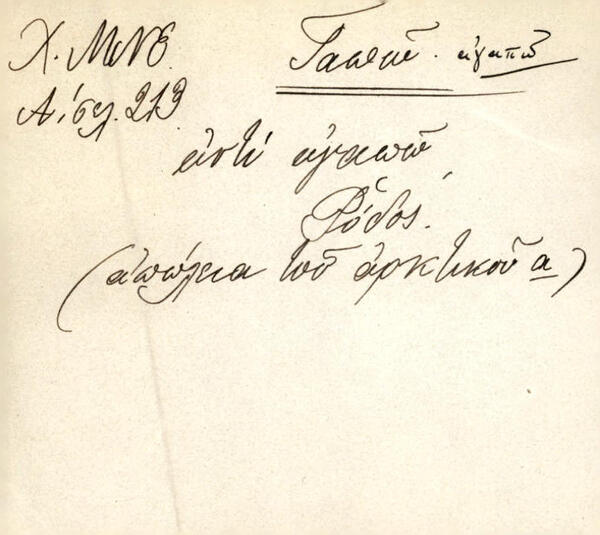 Χ. ΜΝΕ.
Α, σελ. 213
Γαπῶ. ἀγαπῶ
ἀντί ἀγαπῶ,
Ρόδος.
(ἀπώλεια τοῦ ἀρκτικοῦ α)